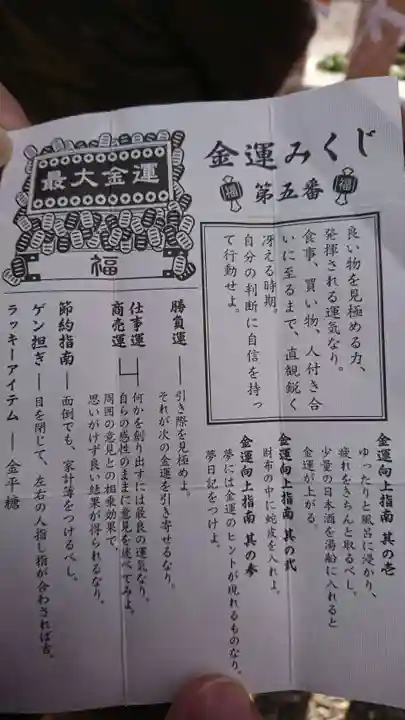 金運みくじ
福
第五番
福
最大金運
福
良い物を見極める力、
発揮される運気なり。
食事、買い物、人付き合
いに至るまで、直観鋭く
冴える時期。
自分の判断に自信を持っ
て行動せよ。
金運向上指南 其の壱
ゆったりと風呂に浸かり、
疲れをきちんと取るべし。
少量の日本酒を湯船に入れると
金運が上がる。
金運向上指南 其の弐
財布の中に蛇皮を入れよ。
金運向上指南 其の参
夢には金運のヒントが現れるものなり。
夢日記をつけよ。
勝負運―引き際を見極めよ。
それが次の金運を引き寄せるなり。
仕事運
商売運
何かを創り出すには最良の運気なり。
自らの感性のままに意見を述べてみよ。
周囲の意見との相乗効果で、
思いがけず良い結果が得られるなり。
節約指南―面倒でも、家計簿をつけるべし。
ゲン担ぎ―目を閉じて、左右の人指し指が合わされば吉。
ラッキーアイテム―金平糖